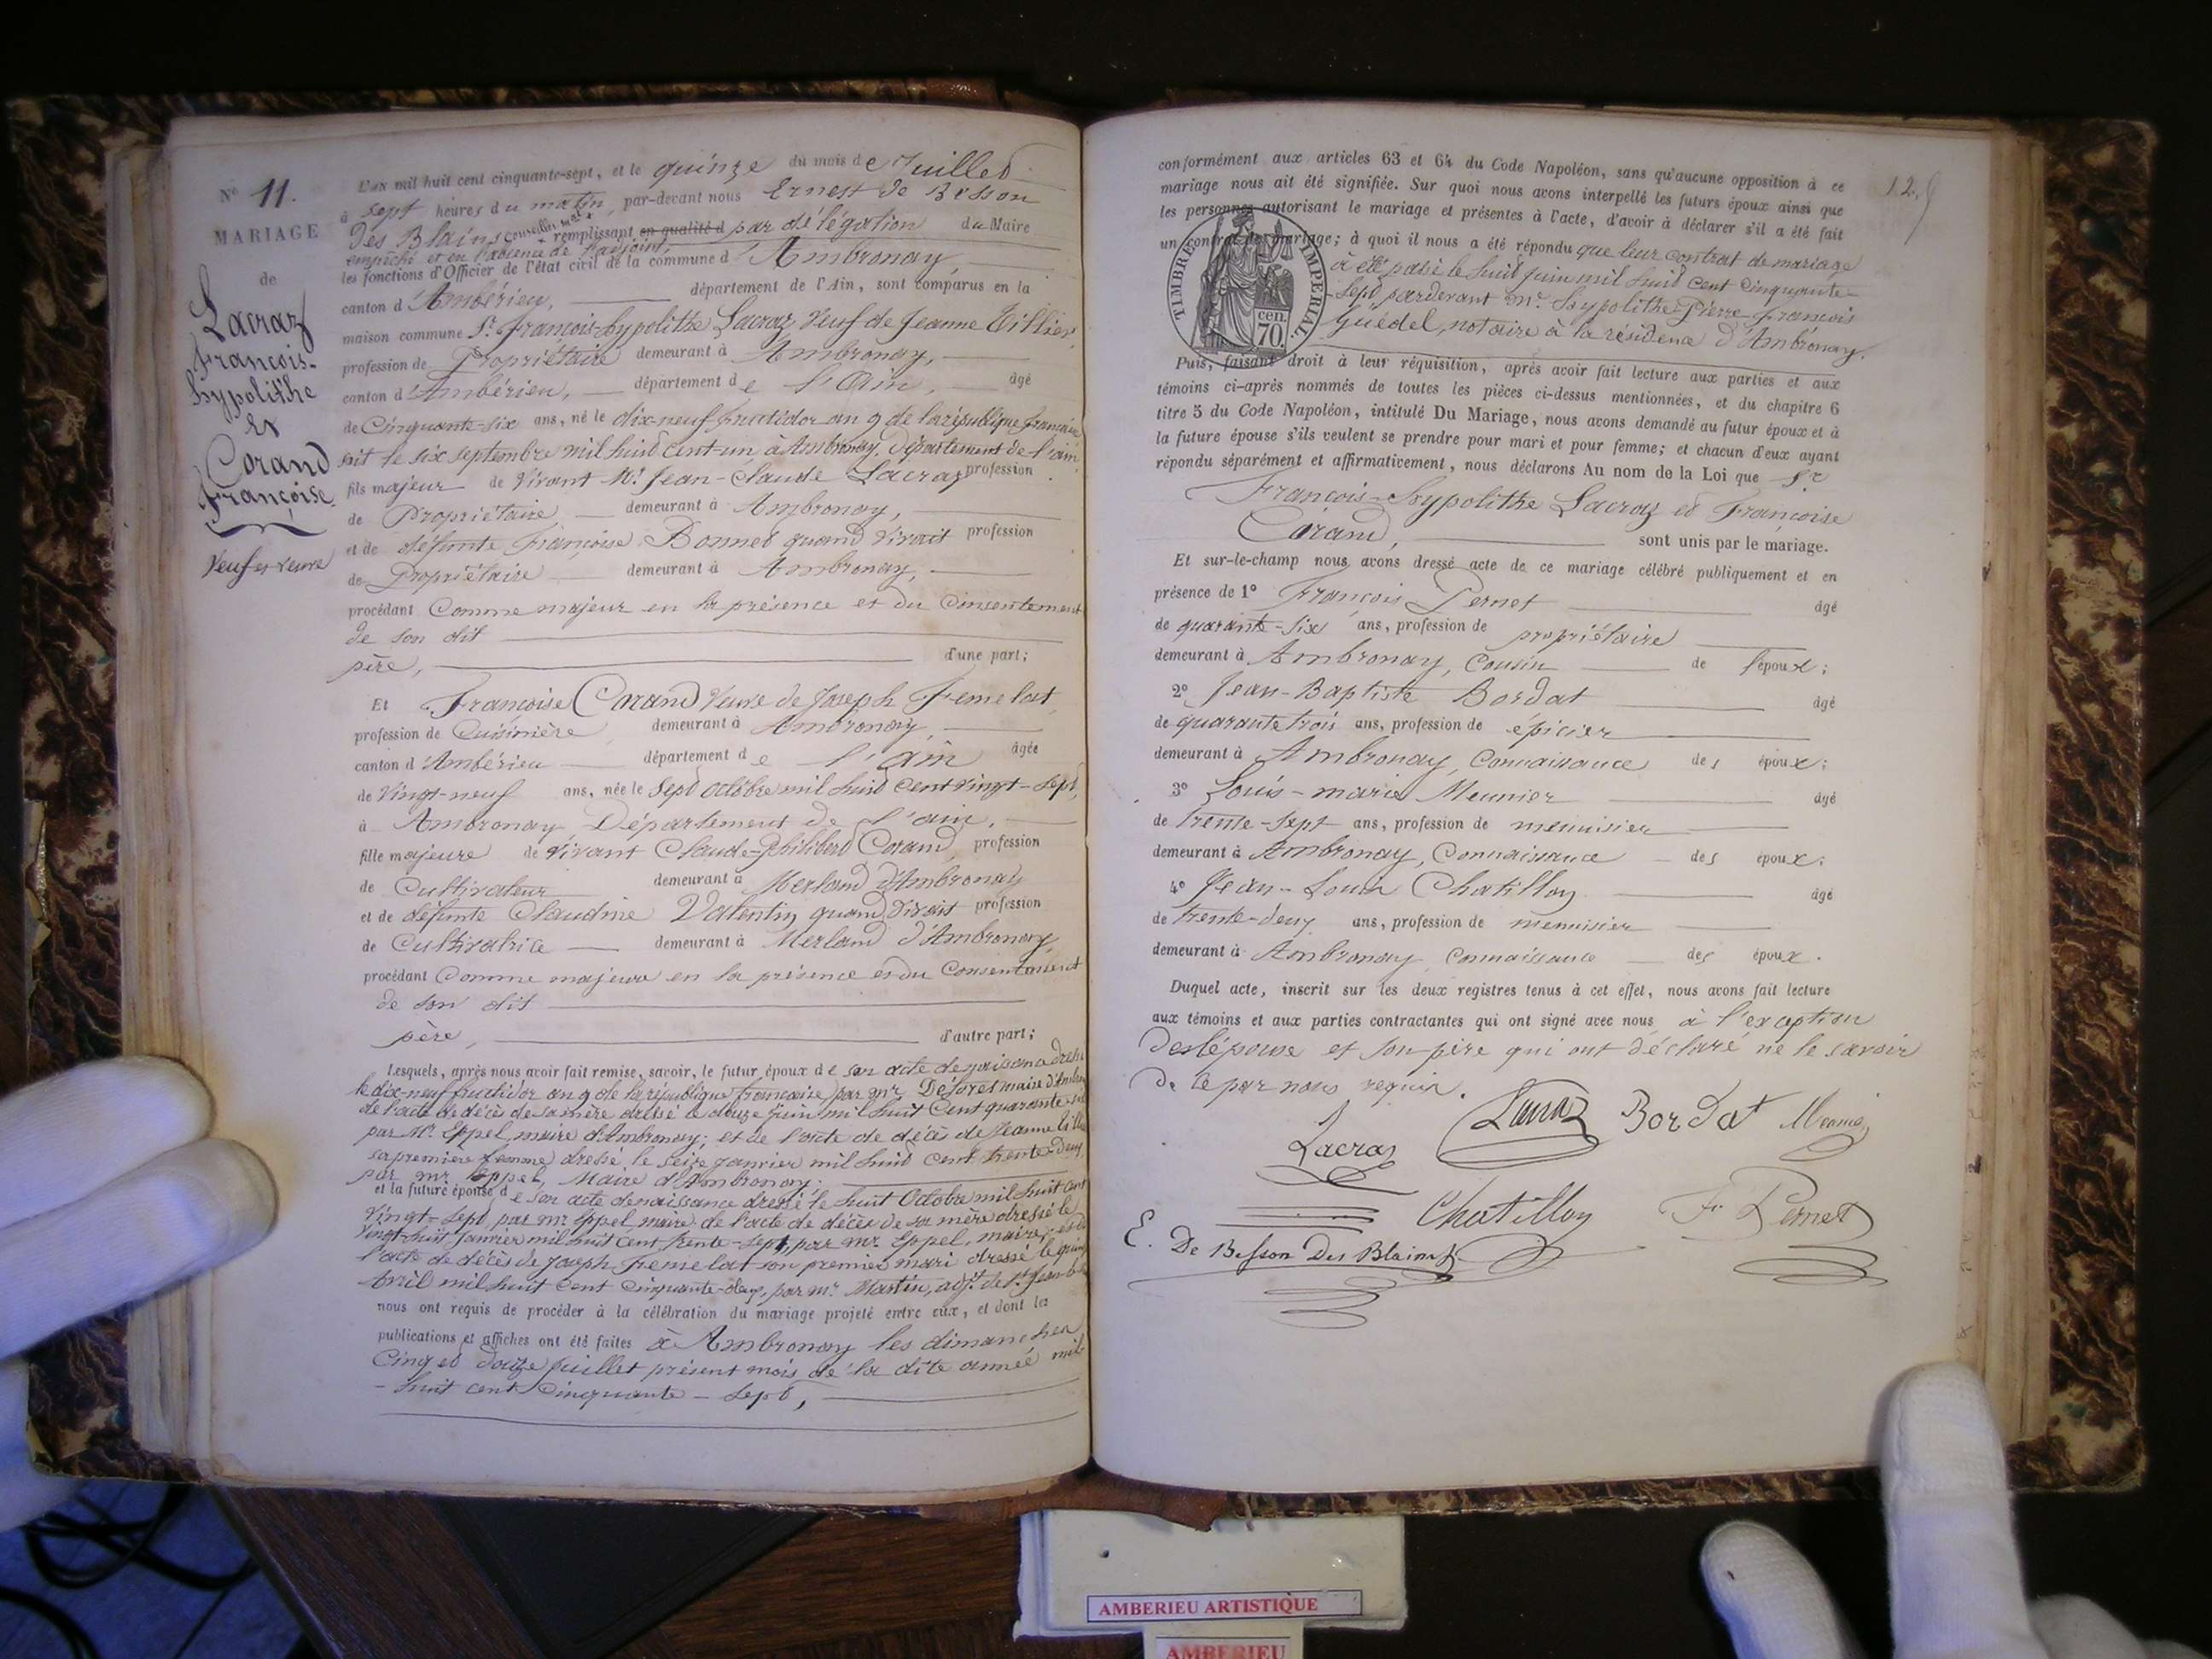 N° 11.
MARIAGE
de
Lacraz
François-
hypolithe
et
Corand
Françoise.
Veuf et veuve
L'an mil huit cent cinquante-sept, et le quinze du mois de Juillet
à sept heures du matin, par-devant nous Ernest de Besson
Des Blains conseiller remplissant en qualité d par délégation du Maire
empêché et en l'absence de l'adjoint,
les fonctions d'Officier de l'état civil de la commune d'Ambronay,
canton d'Ambérieu, département de l'Ain, sont comparus en la
maison commune Sr. François-hypolithe Lacraz veuf de Jeanne Tillier,
profession de Propriétaire demeurant à Ambronay,
canton d'Ambérieu, département de l'Ain, âgé
de Cinquante-six ans, né le dix-neuf fructidor an 9 de la république française
soit le six septembre mil huit cent-un, à Ambronay, Département de l'ain,
fils majeur de vivant Mr. Jean-Claude Lacraz profession
de Propriétaire, demeurant à Ambronay,
et de défunte Françoise Bonnet quand vivait profession
de Propriétaire demeurant à Ambronay,
procédant Comme majeur en la présence et du Concentement
de son dit
père, d'une part;
Et Françoise Corand Veuve de Joseph Femelat,
profession de Cuisinière, demeurant à Ambronay,
canton d'Ambérieu département de l'Ain âgée
de Vingt-neuf ans, née le Sept Octobre mil huit cent vingt-sept,
à Ambronay, Département de l'ain,
fille majeure de vivant Claude-Philibert Corand, profession
de Cultivateur demeurant à Merland d'Ambronay
et de défunte Claudine Valentin quand vivait profession
de Cultivatrice demeurant à Merland d'Ambronay,
procédant Comme majeure en la présence et du Consentement
de son dit
père, d'autre part;
Lesquels, après nous avoir fait remise, savoir, le futur époux de son acte de naissance dressé
le dix-neuf fructidor an 9 de la république française, par mr. Deforet maire d'Ambro
de l'acte de décès de sa mère dressé le douze juin mil huit Cent quarante-
par Mr. Eppel, maire d'Ambronay; et de l'acte de décès de Jeanne Tillie
sa première femme, dressé le seize janvier mil huit cent trente-deux,
par mr. Eppel, Maire d'Ambronay;
et la future épouse, de son acte de naissance dressé le huit Octobre mil huit cent
vingt-sept, par mr. Eppel, maire. de l'acte de décès de sa mère dressé le
vingt-huit janvier mil huit cent trente-sept, par mr. Eppel, maire, et de
l'acte de décès de Joseph Femelat son premier mari dressé le quin
Avril mil huit cent cinquante-deux, par mr. Martin, adjt. de St. Jean
nous ont requis de procéder à la célébration du mariage projeté entre eux, et dont les
publications et affiches ont été faites à Ambronay les dimanches
Cinq et douze juillet présent mois de la dite année mil
-huit cent cinquante-sept,
12.
conformément aux articles 63 et 64 du Code Napoléon, sans qu'aucune opposition à ce
mariage nous ait été signifiée. Sur quoi nous avons interpellé les futurs époux ainsi que
les personnes autorisant le mariage et présentes à l'acte, d'avoir à déclarer s'il a été fait
un contrat de mariage; à quoi il nous a été répondu que leur contrat de mariage
a été passé le huit juin mil huit cent cinquante-
sept, pardevant mr. hypolithe-Pierre-François
Guédel, notaire à la résidence d'Ambronay.
TIMBRE IMPÉRIAL.
cen.
70.
Puis, faisant droit à leur réquisition, après avoir fait lecture aux parties et aux
témoins ci-après nommés de toutes les pièces ci-dessus mentionnées, et du chapitre 6
titre 5 du Code Napoléon, intitulé Du Mariage, nous avons demandé au futur époux et à
la future épouse s'ils veulent se prendre pour mari et pour femme; et chacun d'eux ayant
répondu séparément et affirmativement, nous déclarons Au nom de la Loi que Sr.
François-hypolithe Lacraz et Françoise
Corand, sont unis par le mariage.
Et sur-le-champ nous avons dressé acte de ce mariage célébré publiquement et en
présence de 1° François Pernet âgé
de quarante-six ans, profession de propriétaire
demeurant à Ambronay, Cousin de l'époux;
2° Jean-Baptiste Bordat âgé
de quarante trois ans, profession de épicier
demeurant à Ambronay, Connaissance des époux;
3° Louis-marie Meunier âgé
de trente-sept ans, profession de menuisier
demeurant à Ambronay, Connaissance des époux;
4° Jean-Louis Chatillon âgé
de trente-deux ans, profession de menuisier
demeurant à Ambronay Connaissance des époux.
Duquel acte, inscrit sur les deux registres tenus à cet effet, nous avons fait lecture
aux témoins et aux parties contractantes qui ont signé avec nous à l'exception
de l'épouse et son père qui ont déclaré ne le savoir
de ce par nous requis.
Lacraz Bordat Meunier
Lacraz
Chatillon F. Pernet
E. De Besson Des Blains
AMBERIEU ARTISTIQUE
AMBERIEU